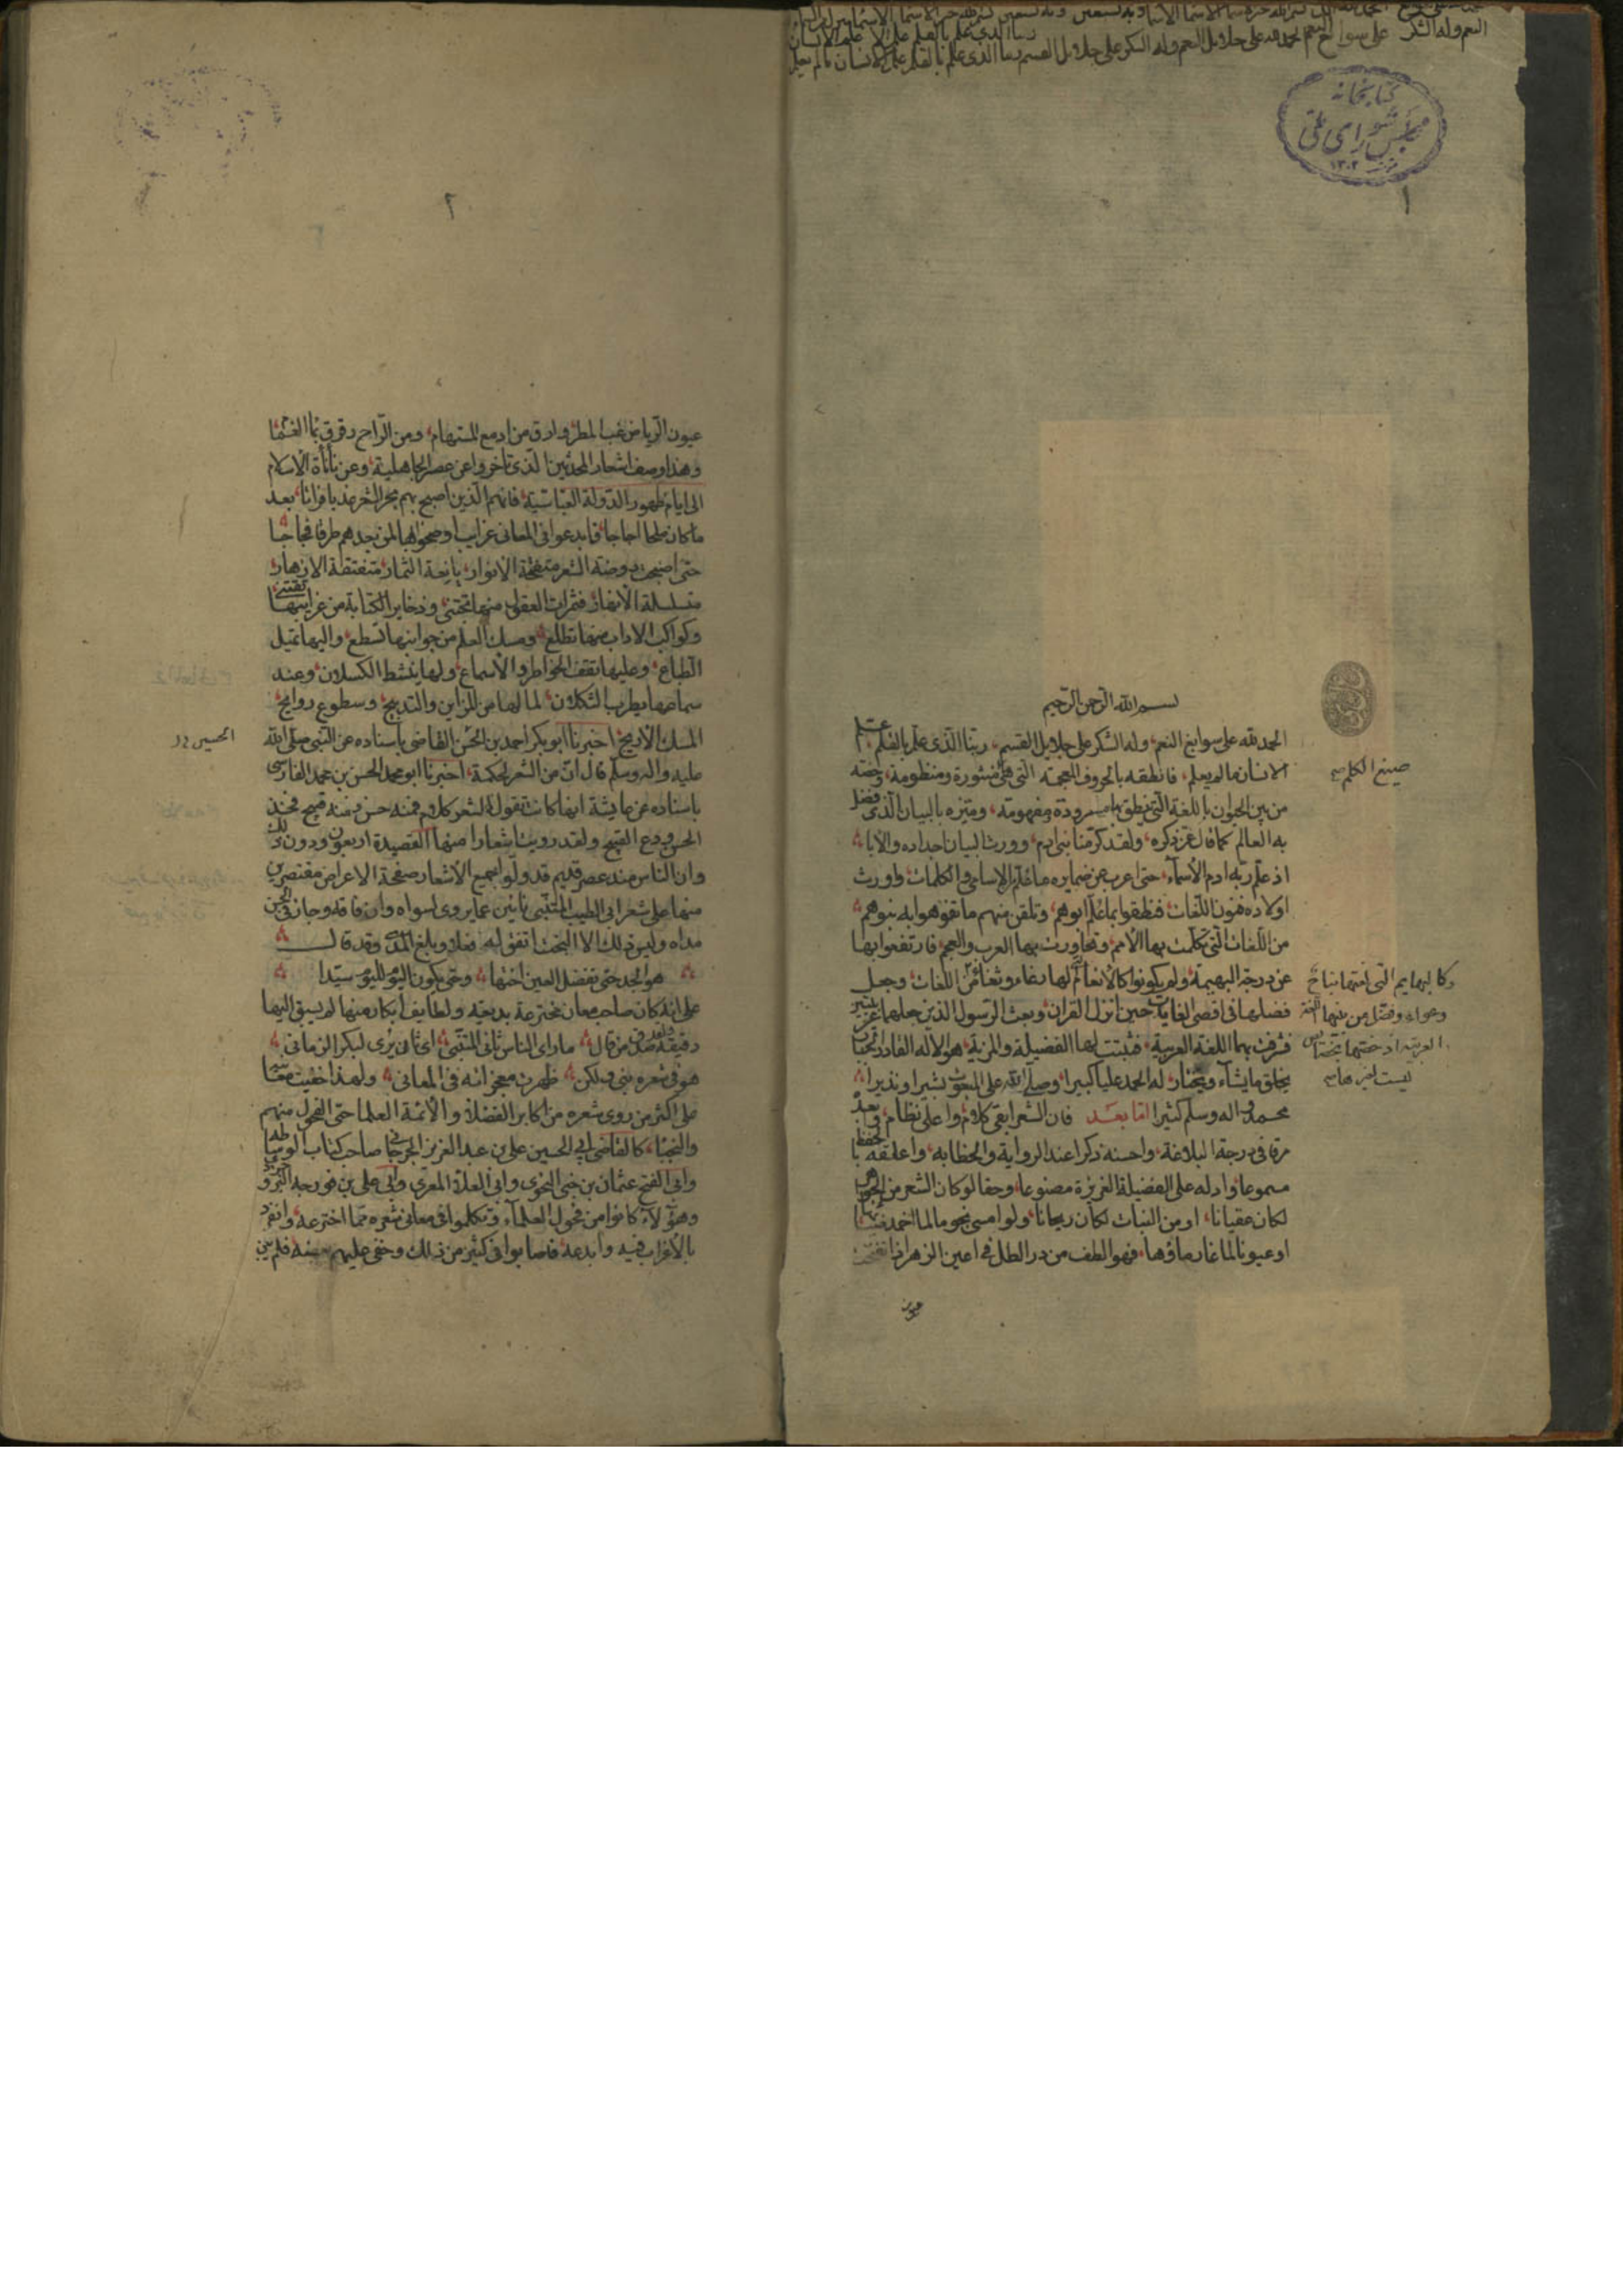 كتابخانه
مجلس شورای ملی
١٣٠٢
١
بسم الله الرحمن الرحيم
الحمد لله على سوابغ النعم، وله الشكر على جلايل القسم، ربنا الذى علم بالقلم، علم
الانسان ما لم يعلم، فانطقه بالحروف المعجمة التى هى منثورة ومنظومة، وخصه
من بين الحيوان باللغة التى ينطق بها مسرودة مفهومة، وميزه بالبيان الذى فضل
به العالم كما قال عز ذكره، ولقد كرمنا بنى ادم، وورث البيان اجداده والاباء
اذ علم ربه ادم الأسماء، حتى اعرب عن ضمايره ما علم الاسامى والكلمات، واورث
اولاده فنون اللغات، فنطقوا بما علم ابوهم، وتلقن منهم ما تفوهوا به بنوهم
من اللغات التى تكلمت بها الأمم، وتحاورت بها العرب والعجم، فارتفعوا بها
عن درجة البهيمة، ولم يكونوا كالأنعام التى لها رغاء وثغاء من اللغات، وجعل
فضلها فى اقصى الغايات حين انزل القران، وبعث الرسول الذين جعلهما عربيين
فشرفت بهما اللغة العربية، فثبتت لها الفضيلة والمزية، هو الاله القادر
يخلق ما يشاء ويختار، له الحمد عليا كبيرا، وصلى الله على المبعوث بشيرا ونذيرا
محمد واله وسلم كثيرا اما بعد فان الشعر ابقى كلام، واعلى نظام، وابعده
مرقى فى درجة البلاغة، واحسنه ذكرا عند الرواية والخطابه، واعلقه بالحفظ
مسموعا، وادله على الفضيلة الغريزة مصنوعا، وحقا لو كان الشعر من الجواهر
لكان عقيانا، او من النبات لكان ريحانا، ولو امسى نجوما لما اخمد ضياؤها
او عيونا لما غار ماؤها، فهو الطف من در الطل فى اعين الزهر اذا تفتحت
عيون
صيغ الكلم صح
وكالبهايم التى لغتها نباح
وعواء وفضل من بينها اللغة
العربية اذ خصها بخصايص
ليست لغيرها صح
٢
عيون الرياض غب المطر، وارق من ادمع المستهام، ومن الراح رقرق بماء الغمام
وهذا وصف اشعار المحدثين الذى تأخروا عن عصر الجاهلية، وعن نأنأة الاسلام
الى ايام ظهور الدولة العباسية، فانهم الذين اصبح بهم بحر الشعر عذبا فراتا، بعد
ما كان ملحا اجاجا، فابدعوا فى المعانى غرايب اوضحوا بها لمن بعدهم طرقا فجاجا
حتى اصبحت روضة الشعر متفتحة الانوار، يانعة الثمار، متفتقة الازهار
متسلسلة الأنهار، فثمرات العقول منها تجتنى، وذخاير الكتابة من غرايبها تقتنى
وكواكب الاداب منها تطلع، ومسك العلم من جوانبها تسطع، واليها تميل
الطباع، وعليها تقف الخواطر والأسماع، ولها ينشط الكسلان، وعند
سماعها يطرب الثكلان، لما لها من المزاين والتدبيج، وسطوع روايح
المسك الأريج، اخبرنا ابو بكر احمد بن الحسن القاضى باسناده عن النبى صلى الله
عليه واله وسلم قال ان من الشعر لحكمة، اخبرنا ابو محمد الحسن بن محمد الفارسى
باسناده عن عايشة انها كانت تقول الشعر كلام فمنه حسن ومنه قبيح فخذ
الحسن ودع القبيح ولقد رويت اشعارا منها القصيدة اربعون ودون ذلك
وان الناس منذ عصر قديم قد ولوا جميع الأشعار صفحة الاعراض مقتصرين
منها على شعر ابى الطيب المتنبى نائين عما يروى لسواه وان فاقه وجاز فى الحسن
مداه وليس ذلك الا البخت اتفق له فعلا وبلغ المدى وقد قال
هو الجد حتى تفضل العين اختها وحتى يكون اليوم لليوم سيدا
على انه كان صاحب معان مخترعة بديعة ولطايف ابكار منها لم يسبق اليها
دقيقة ولقد صدق من قال ما راى الناس ثانى المتنبى اى ثان يرى لبكر الزمان
هو فى شعره نبى ولكن ظهرت معجزاته فى المعانى ولهذا خفيت معانيه
على اكثر من روى شعره من اكابر الفضلاء والأئمة العلما حتى الفحول منهم
والنجباء، كالقاضى ابى الحسين على بن عبد العزيز الجرجانى صاحب كتاب الوساطة
وابى الفتح عثمان بن جنى النحوى وابى العلاء المعرى وابى على بن فورجه البروجردى
وهؤلاء كانوا من فحول العلماء، وتكلموا فى معانى شعره مما اخترعه، وانفرد
بالأغراب فيه وابدعه، فاصابوا فى كثير من ذلك وخفى عليهم بعضه فلم يبن
الحسين